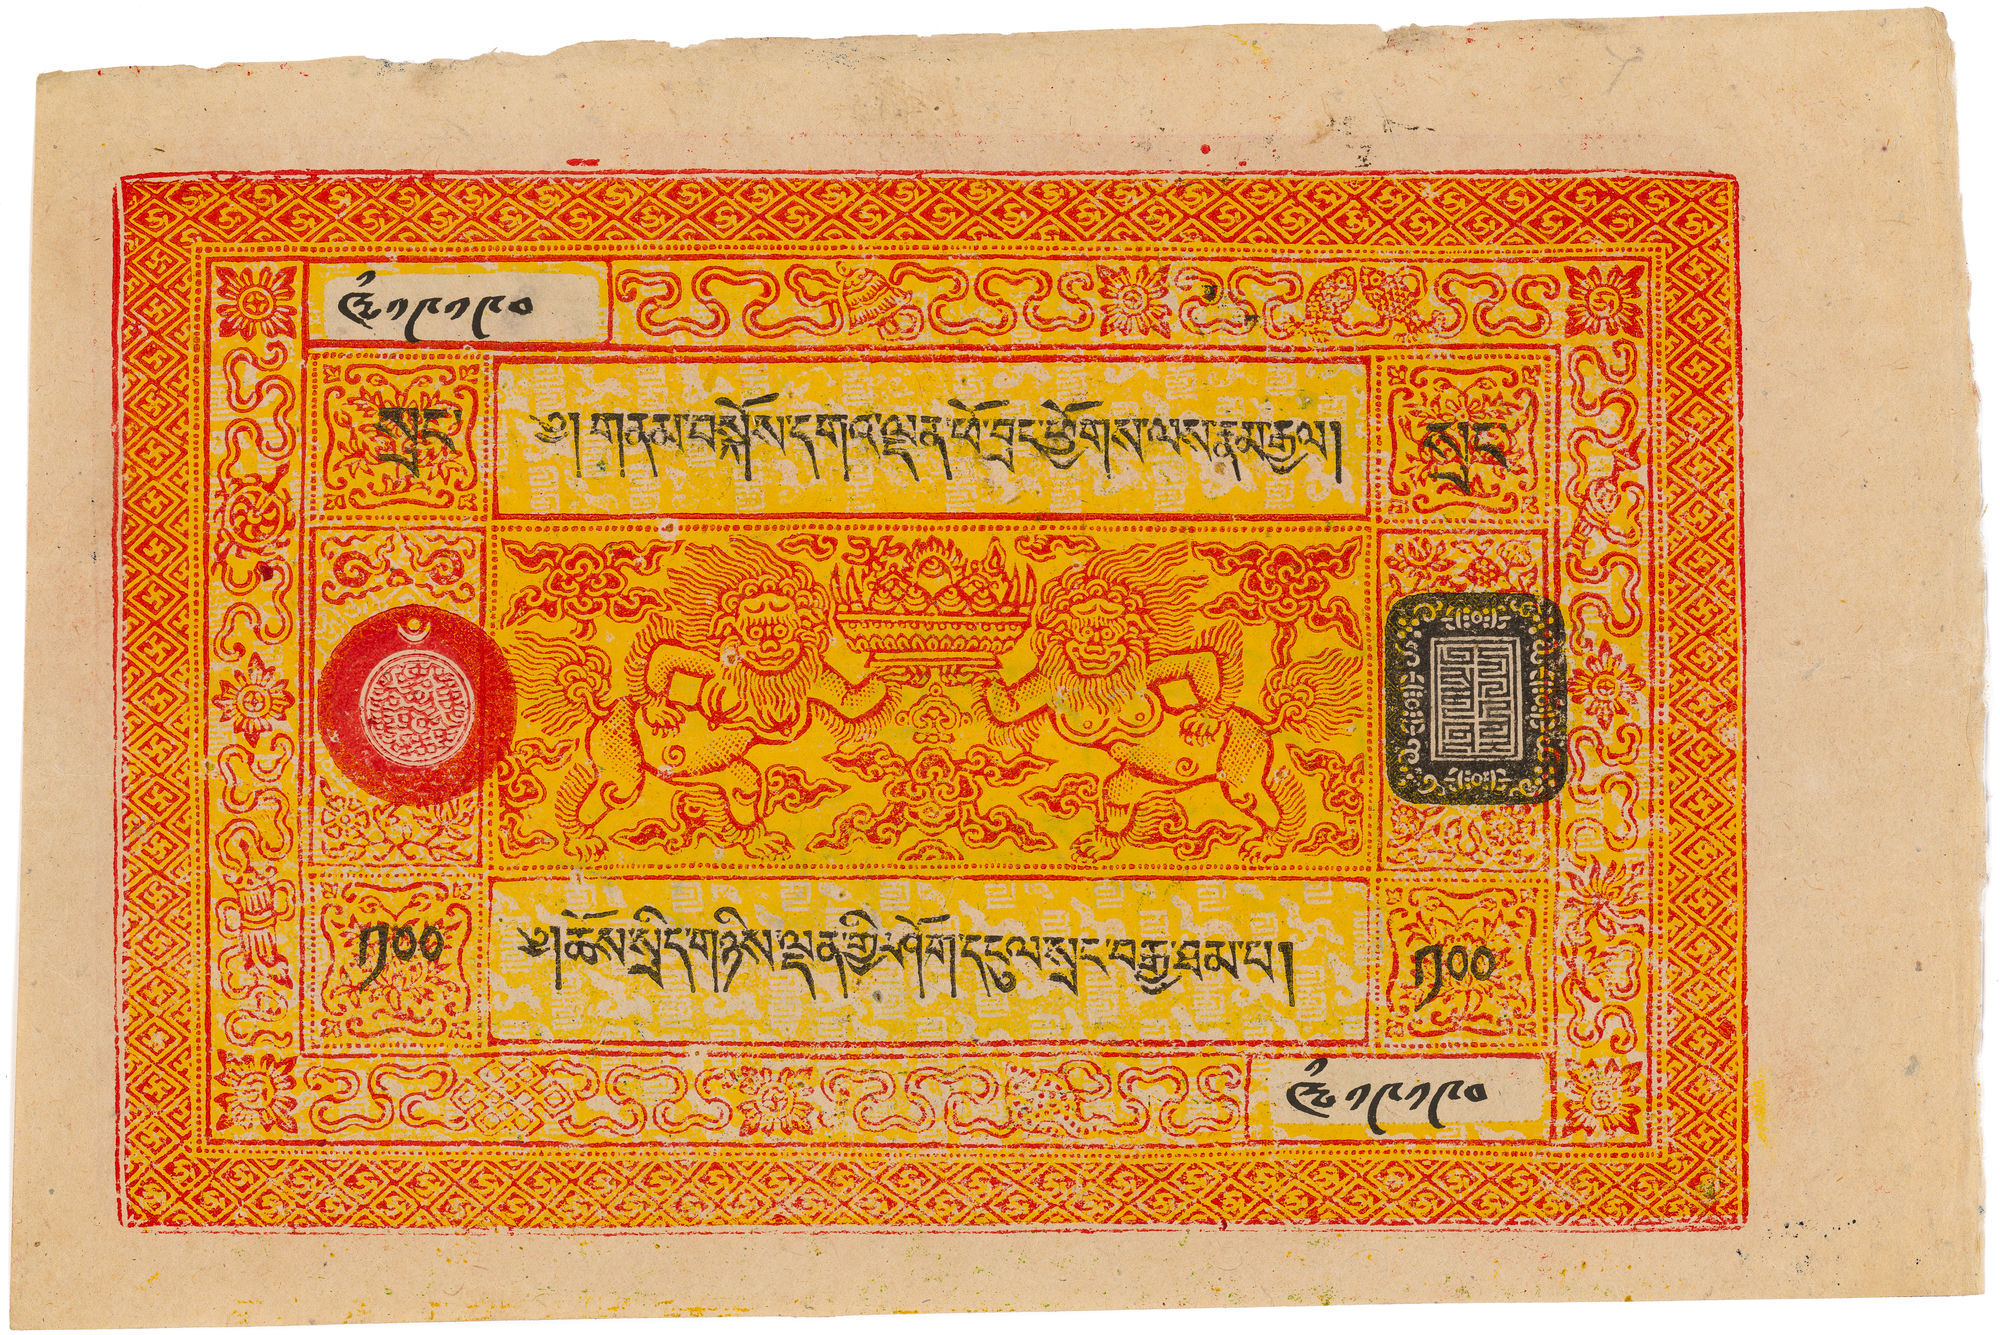 ཨཱཾ༡༩༡༩༠
སྲང
༄། གནམ་བསྐོས་དགའ་ལྡན་ཕོ་བྲང་ཕྱོགས་ལས་རྣམ་རྒྱལ།
སྲང
༄། ཆོས་སྲིད་གཉིས་ལྡན་གྱི་ཤོག་དངུལ་སྲང་བརྒྱ་ཐམ་པ།
༡༠༠
༡༠༠
ཨཱཾ༡༩༡༩༠